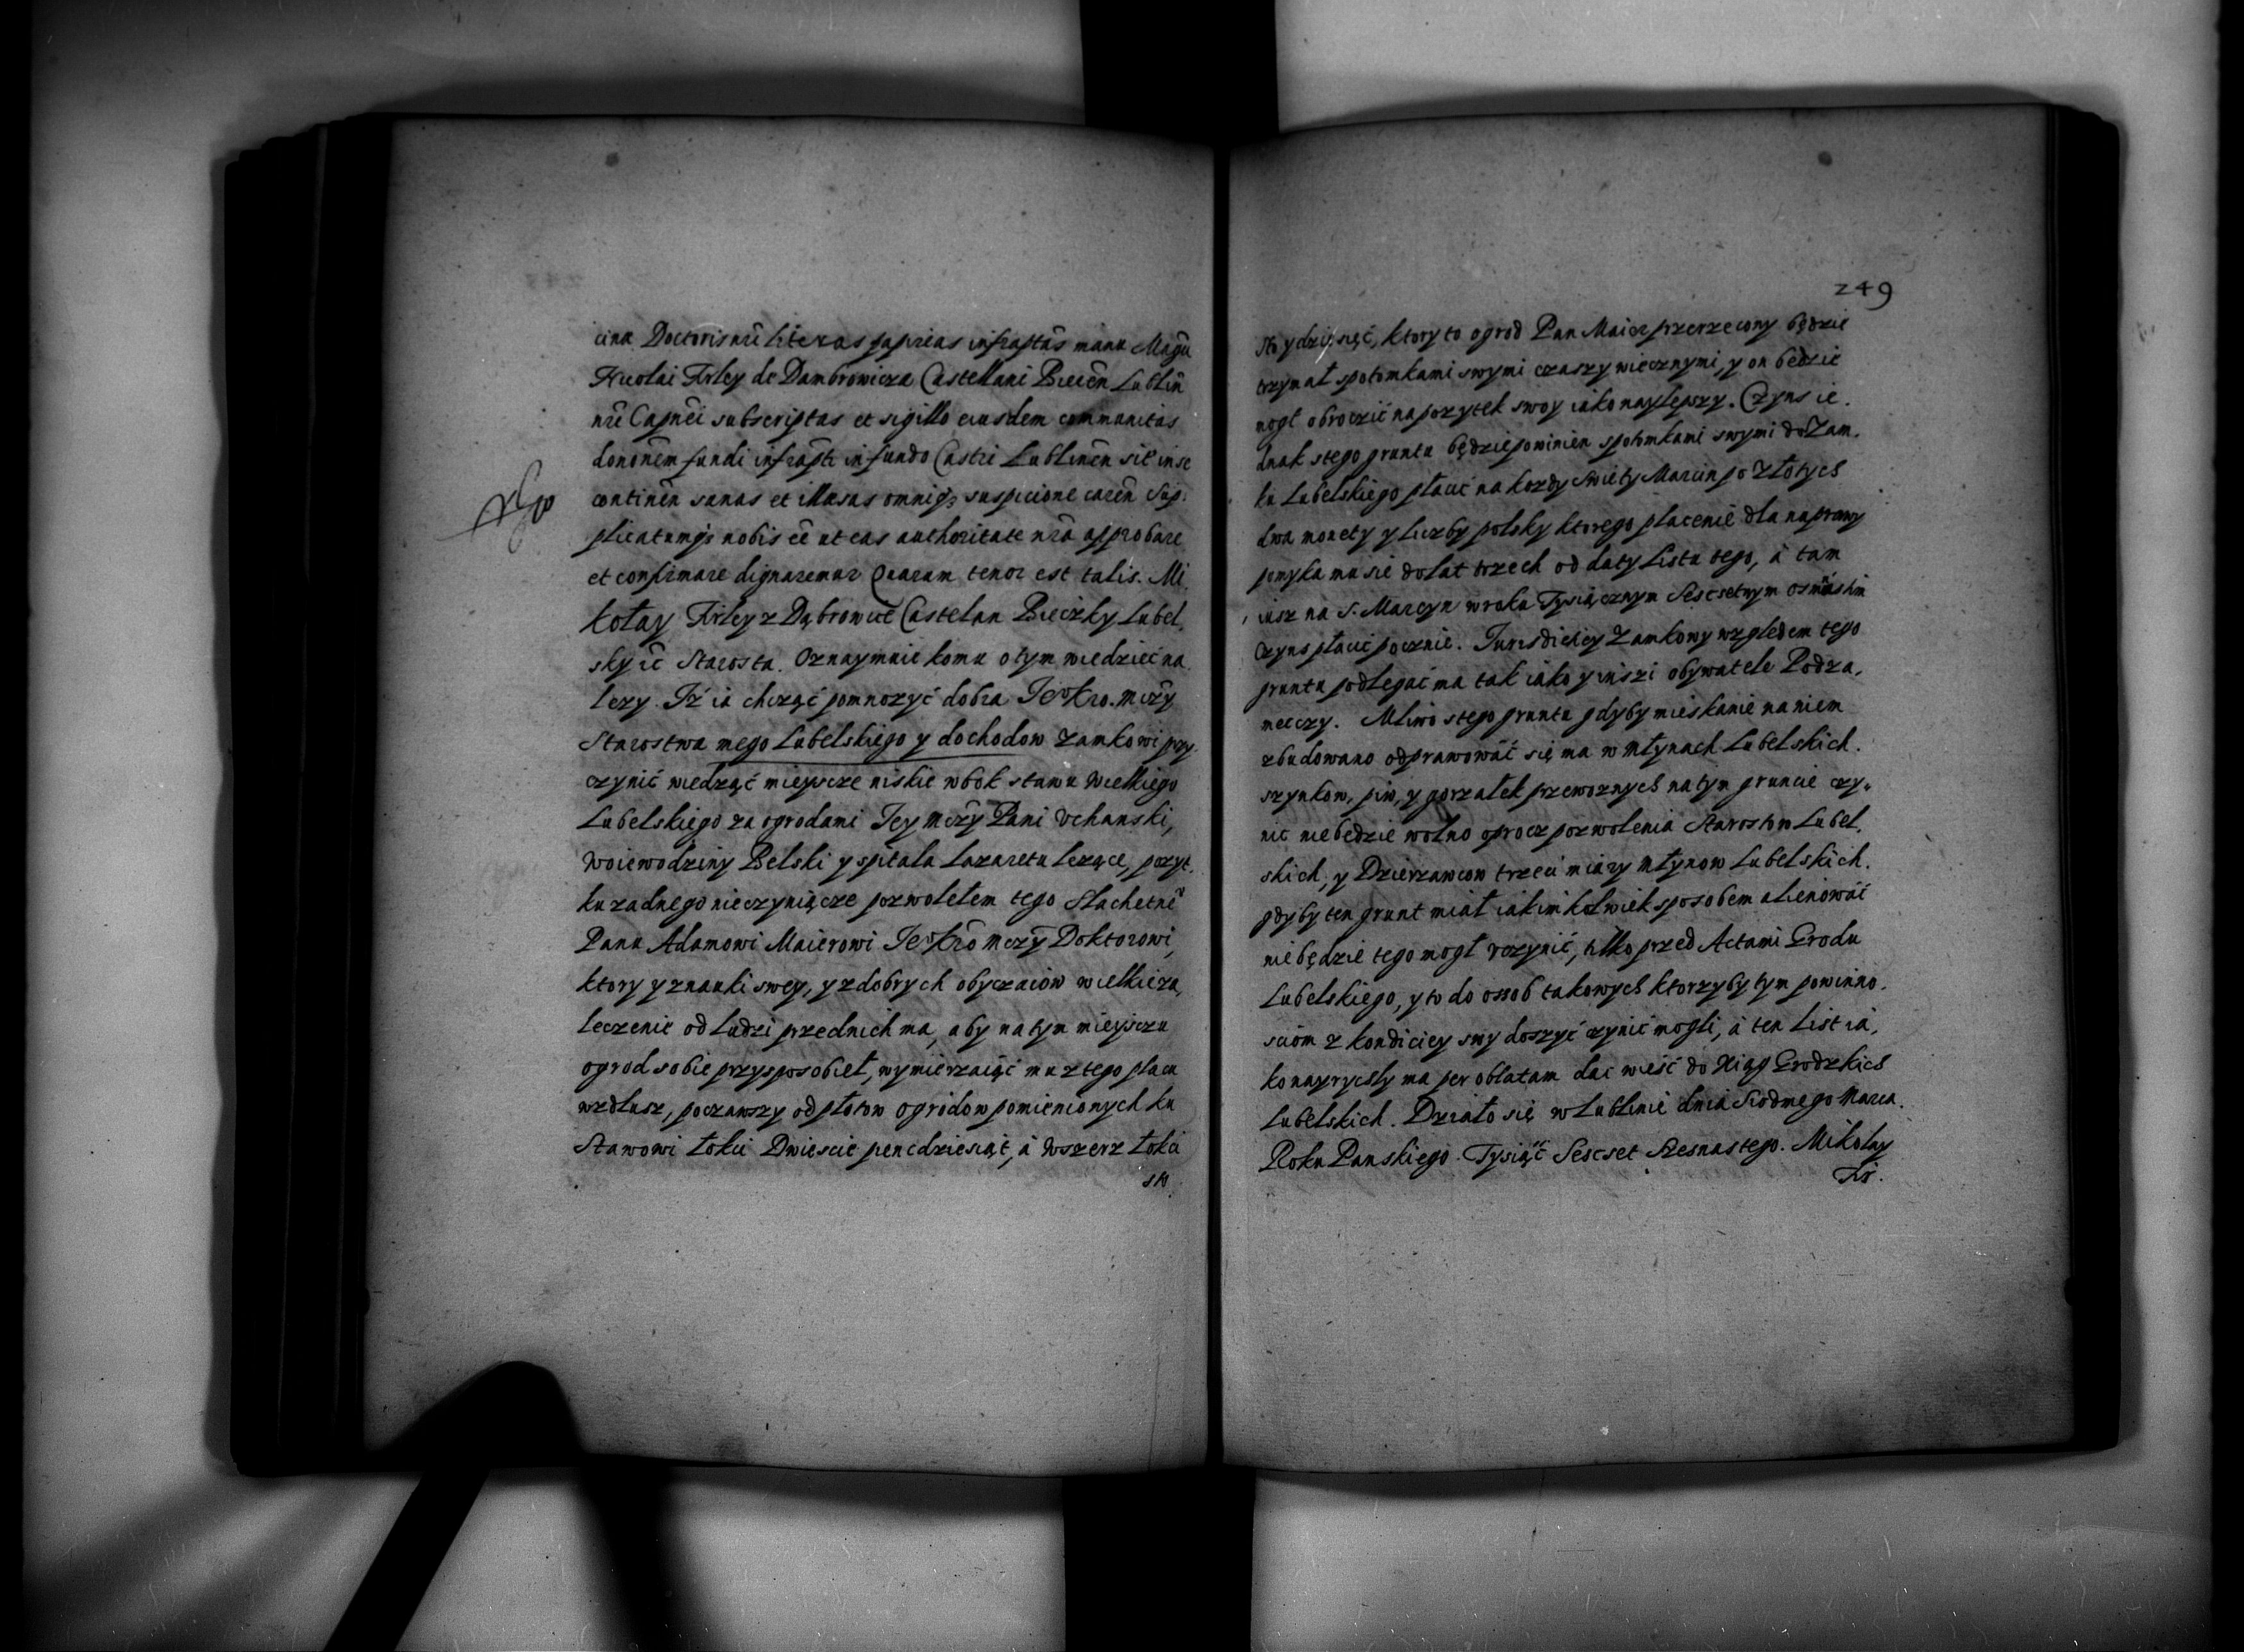 cina Doctoris nri literas papireas infraptas manu Magci
Nicolai Firley de Dambrowicza Castellani Biecen Lublin
nri Capnei subscriptas et sigillo eiusdem communitas
dononem fundi infrapti in fundo Castri Lublinen sie in se
continen sanas et illaesas omniqз suspicione caren Sup:
plicatumqз nobis ee ut eas authoritate nra approbare
et confirmare dignaremur Quarum tenor est talis. Mi
kołay Firley z Dąbrowice Castelan Bieczky Lubel,
sky ic Starosta. Oznaymuie komu o tym wiedzieć na
lezy. Iż ia chcząć pomnozyć dobra Ie Kro. mczy
Starostwa mego Lubelskiego y dochodow Zamkowi przy,
czynić wiedząć mieyscze niskie w bok stawu Wielkiego
Lubelskiego za ogrodami Iey mczy Pani Vchanski,
Woiewodziny Belski y spitala Lazaretu lezące, pozyt,
ku zadnego nie czyniącze pozwolełem tego Slachetne
Panu Adamowi Maierowi Ie Kro mczy Doktorowi,
ktory y z nauki swey, y z dobrych obyczaiow wielkie za,
leczenie od ludzi przednich ma, aby na tym mieysczu
ogrod sobie przysposobieł, wymierzaiąć mu z tego placu
wzdłusz, począwszy od płotow ogrodow pomienionych ku
Stawowi Łokci Dwiescie pencdziesiąt, à wszerz Łokci
sto
249
Sto y dziesięć, ktory to ogrod Pan Maier przerzecony będzie
trzymał s potomkami swymi czaszy wiecznymi, y on bedzie
mogł obroczić na pozytek swoy iako naylepszy. Czyns ie.
dnak s tego gruntu będzie powinien s potomkami swymi do Zam.
ku Lubelskiego płacić na kozdy Swiety Marcin po Złotych
dwa monety y liczby polsky ktorego placenie dla naprawy
pomyka mu sie do lat trzech od daty Listu tego, à tam
iusz na S. Marcyn w roku Tysiącznym Sescsetnym osmnastim
Czyns płacić pocznie. Iurisdiciey Zamkowy względem tego
gruntu podlegać ma tak iako y inszi obywatele Podza,
meczczy. Mliwo s tego gruntu gdyby mieskanie na niem
zbudowano odprawować się ma w Młynach Lubelskich.
szynkow, piw, y gorzałek przewoznych na tym gruncie czy,
nic nie będzie wolno oprocz pozwolenia Starostow Lubel,
skich, y Dzierzawcow trzeci miary Młynow Lubelskich.
gdyby ten grunt miał iakimkolwiek sposobem alienować
nie będzie tego mogł vczynić, tilko przed Actami Grodu
Lubelskiego, y to do osob takowych ktorzyby tym powinno.
sciom z kondiciey swy doszyć czynić mogli, à ten List ia,
ko nayrychly ma per oblatam dac wieść do Xiąg Grodzkich
Lubelskich. Działo się w Lublinie dnia Siodmego Marca.
Roku Panskiego. Tysiąć Sescset Szesnastego. Mikolay
Fir.